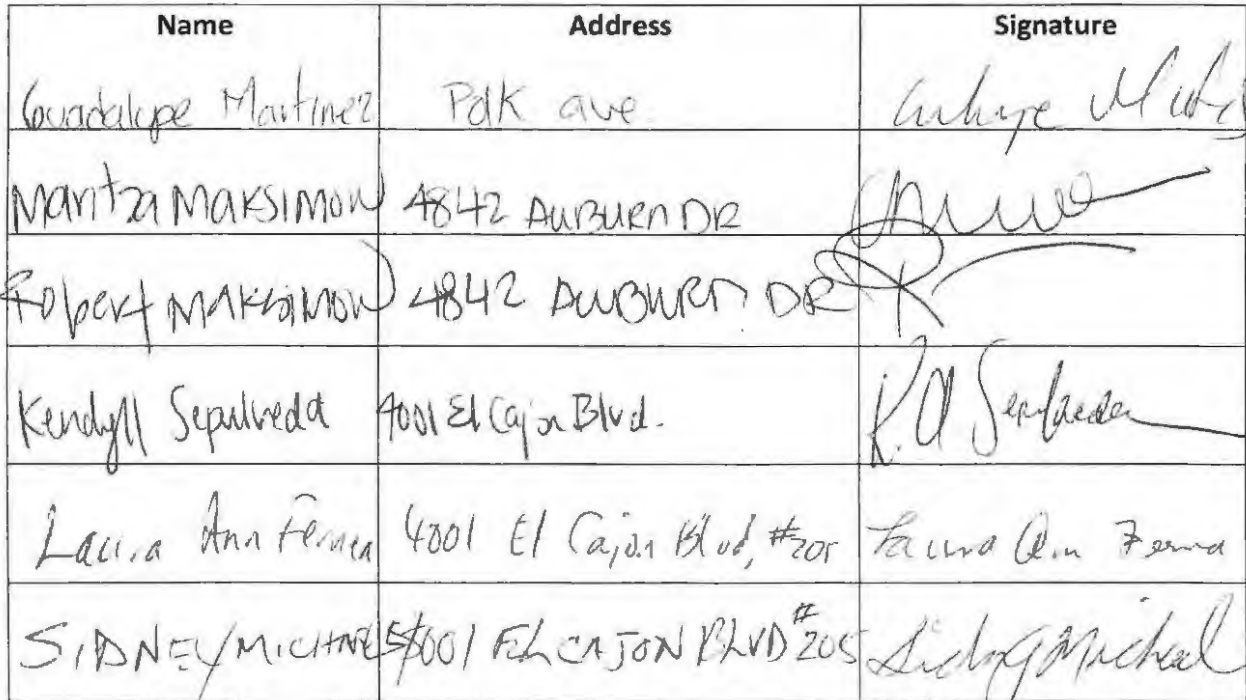 Name Address Signature
Guadalupe Martinez Park ave
Maritza Maksimow 4842 AUBURN DR
Robert Maksimow 4842 AUBURN DR
Kendyll Sepulveda 4001 El Cajon Blvd.
Laura Ann 4001 El Cajon Blvd, #205 Laura Ann
SIDNEY MICHAEL 4001 EL CAJON BLVD #205 Sidney Michael